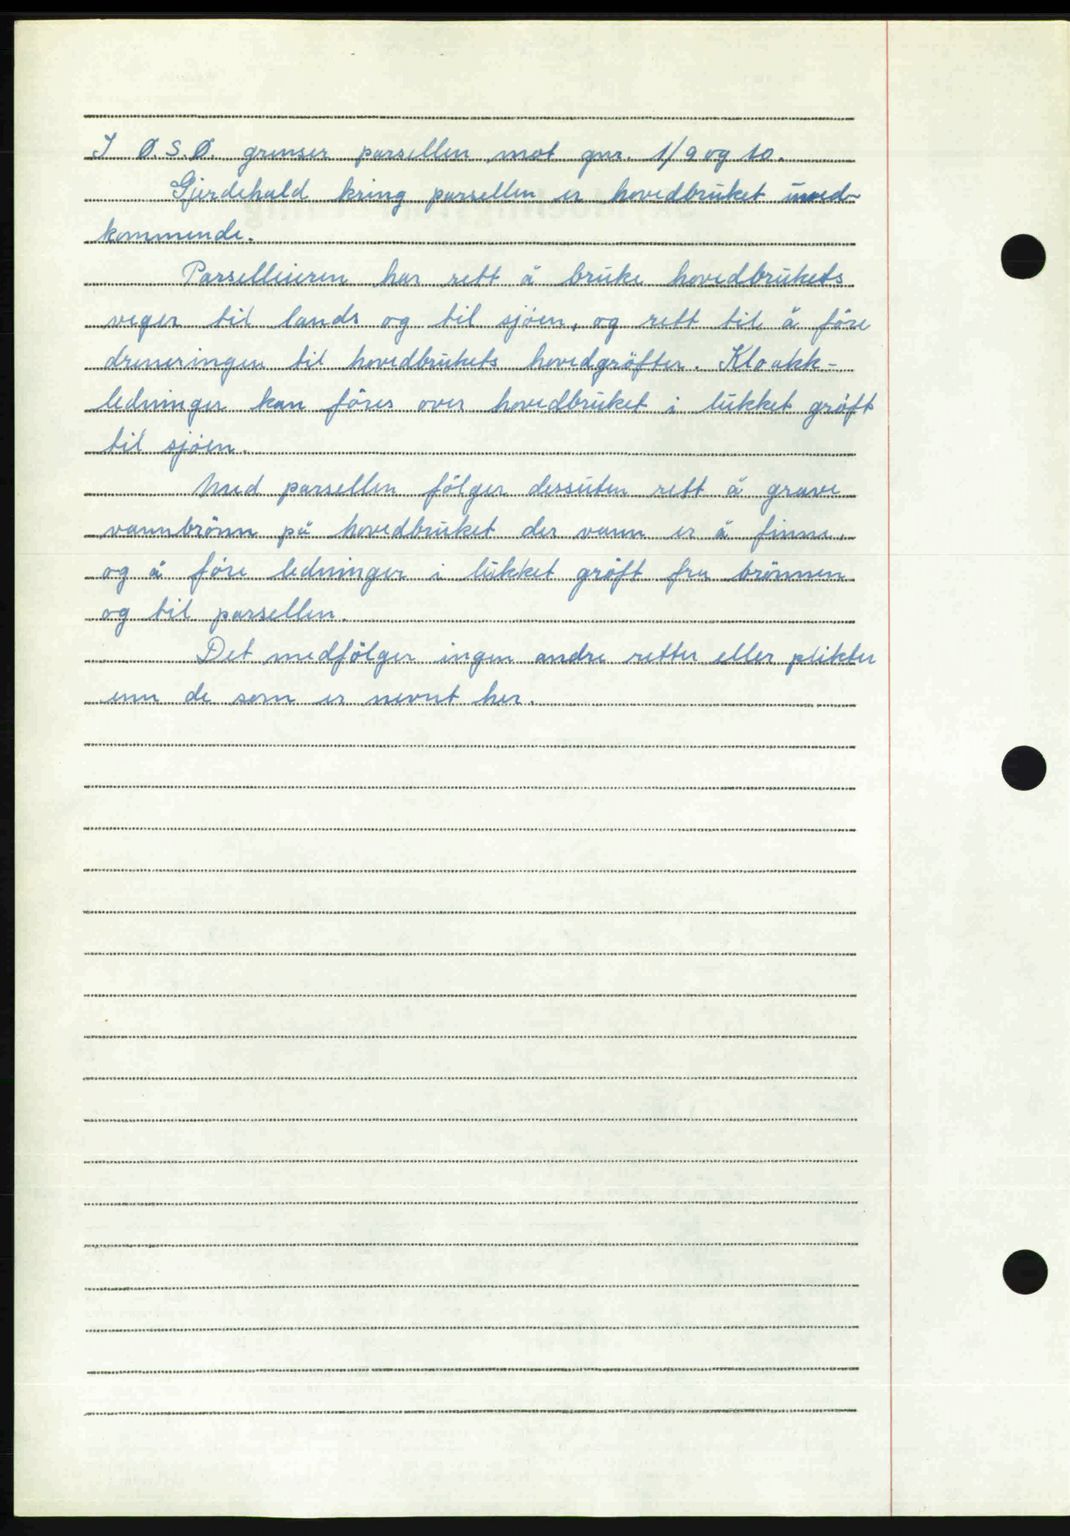 I Ø.S.Ø. grenser parsellen mot gnr. 1/9 og 10.
Gjerdehald kring parsellen er hovedbruket uved-
kommende.
Parselleieren har rett å bruke hovedbrukets
veger til lands og til sjøen, og rett til å føre
dreneringen til hovedbrukets hovedgrøfter. Kloakk-
ledninger kan føres over hovedbruket i lukket grøft
til sjøen.
Med parsellen følger dessuten rett å grave
vannbrønn på hovedbruket der vann er å finne,
og å føre ledninger i lukket grøft fra brønnen
og til parsellen.
Det medfølger ingen andre retter eller plikter
enn de som er nevnt her.